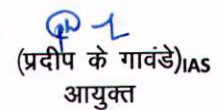 (प्रदीप के गावंडे)IAS
आयुक्त